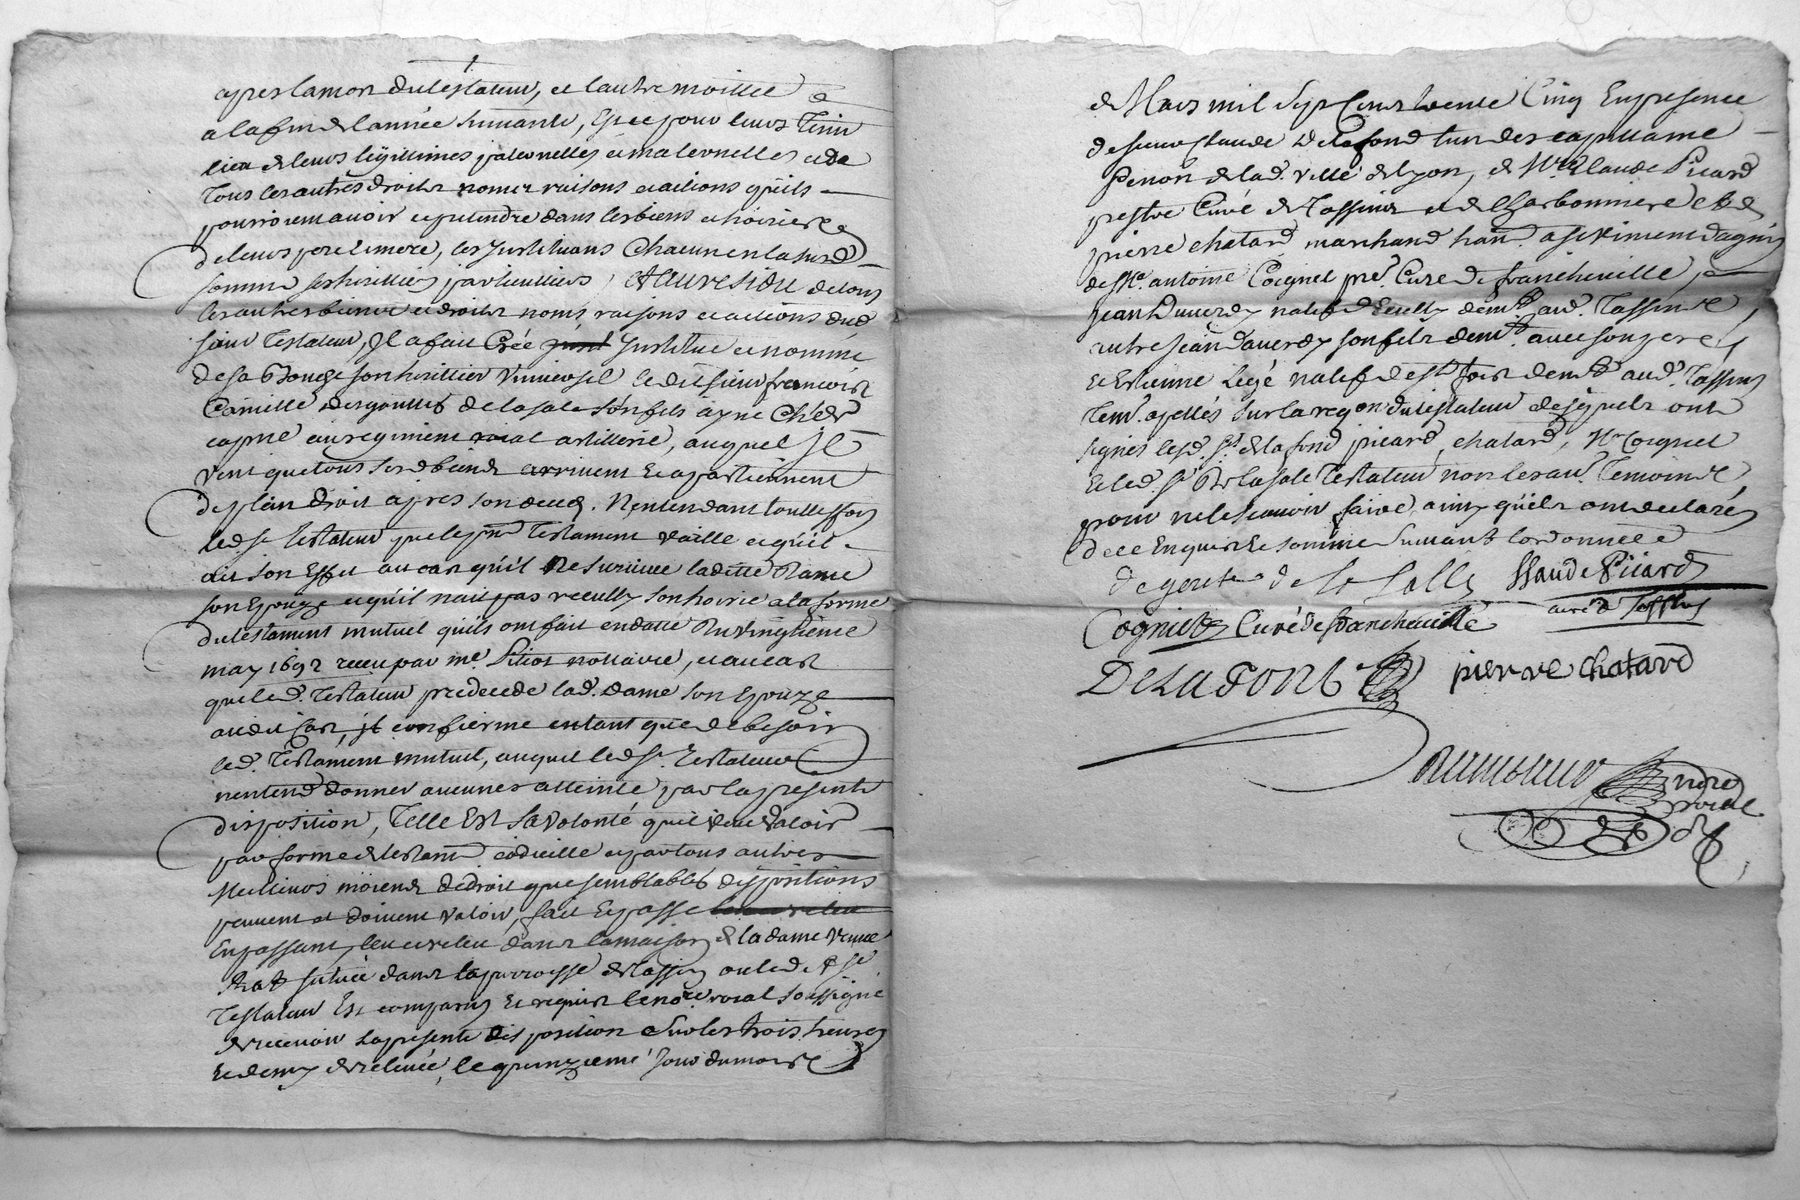 apres la mort du testateur, et l'autre moittié
a la fin de l'année suivante, Et ce pour leurs tenir
lieu de leurs legittimes paternelles et maternelles et de
Tous les autres droits nomr raisons et actions qu'ils
pourroient avoir et pretendre dans les biens et hoiries
de leurs pere et mere, les Instituans Chacune en lasusd
somme ses heritiers particulliers, Et au residu de tous
les autres biens et droits noms raisons et actions dud
sieur Testateur, Il a fait Créé Institué et nommé
de sa Bouche son herittier Universel le dit sieur francois
Camille desgouttes de la sale son fils ayné Cher
capne au regiment roial artillerie, auquel Il
veut que tous sesd biens arrivent et apartiennent
de plein droit apres son deced. N'entendant touttesfois
led sr testateur que le pnt Testament vaille et qu'il
ait son Effet au cas qu'il ne survive laditte Dame
son Epouze et qu'il n'ait pas recully son hoirie a la forme
du testament mutuel qu'ils ont fait en datte du vingtieme
may 1692 receu par me notaire, et au cas
que led. Testateur predecede lad. dame son Epouze
audit cas, il confierme entant que de besoin
led. Testament mutuel, auquel led sr Testateur
n'entend donner aucunes atteinte par la presente
disposition, Telle Est sa volonté qu'il veut valoir
par forme de testamt codicille et par tous autres
Meilleurs moiens de droit que semblables dispositions
peuvent et doivent valoir, fait Et passé
En passant, leu et releu dans la maison de la dame veuve
situee dans la parroisse de Tassin ou led. sr
Testateur Est comparu Et requis le nore roial soussigné
de recevoir la presente disposition sur les trois heures
Et demy de relevée, le quinzieme Jour du mois
de Mars mil Sept Cent trente Cinq En presence
de sieur Claude Delafond l'un des capitaine
Penon de lad. ville de Lyon, de Mre Claude Picard
prestre Curé de Tassin et de Charbonniere et de
pierre chatard marchand
de Mre antoine Coignet pre. Curé de francheville,
Jean Duverdy natif d'Ecully demt. aud. Tassin et
autre Jean Duverdy son fils demt. avec son pere
et Estienne Legé natif de st foix demt aud. Tassin
Tem. apellés sur la req on du testateur desquels ont
signés lesd. srs. de la fond, picard, chatard, Mr Coignet
et led. sr de la sale testateur non les aut. Temoins
pour ne le scavoir faire, ainsy qu'ils ont declarés
de ce Enquis et sommé suivant l'ordonnee
de la Salle Claude Picard
curé de Tassin
Cogniet Curé de francheville
DeLafont pierre chatard
nore
roial